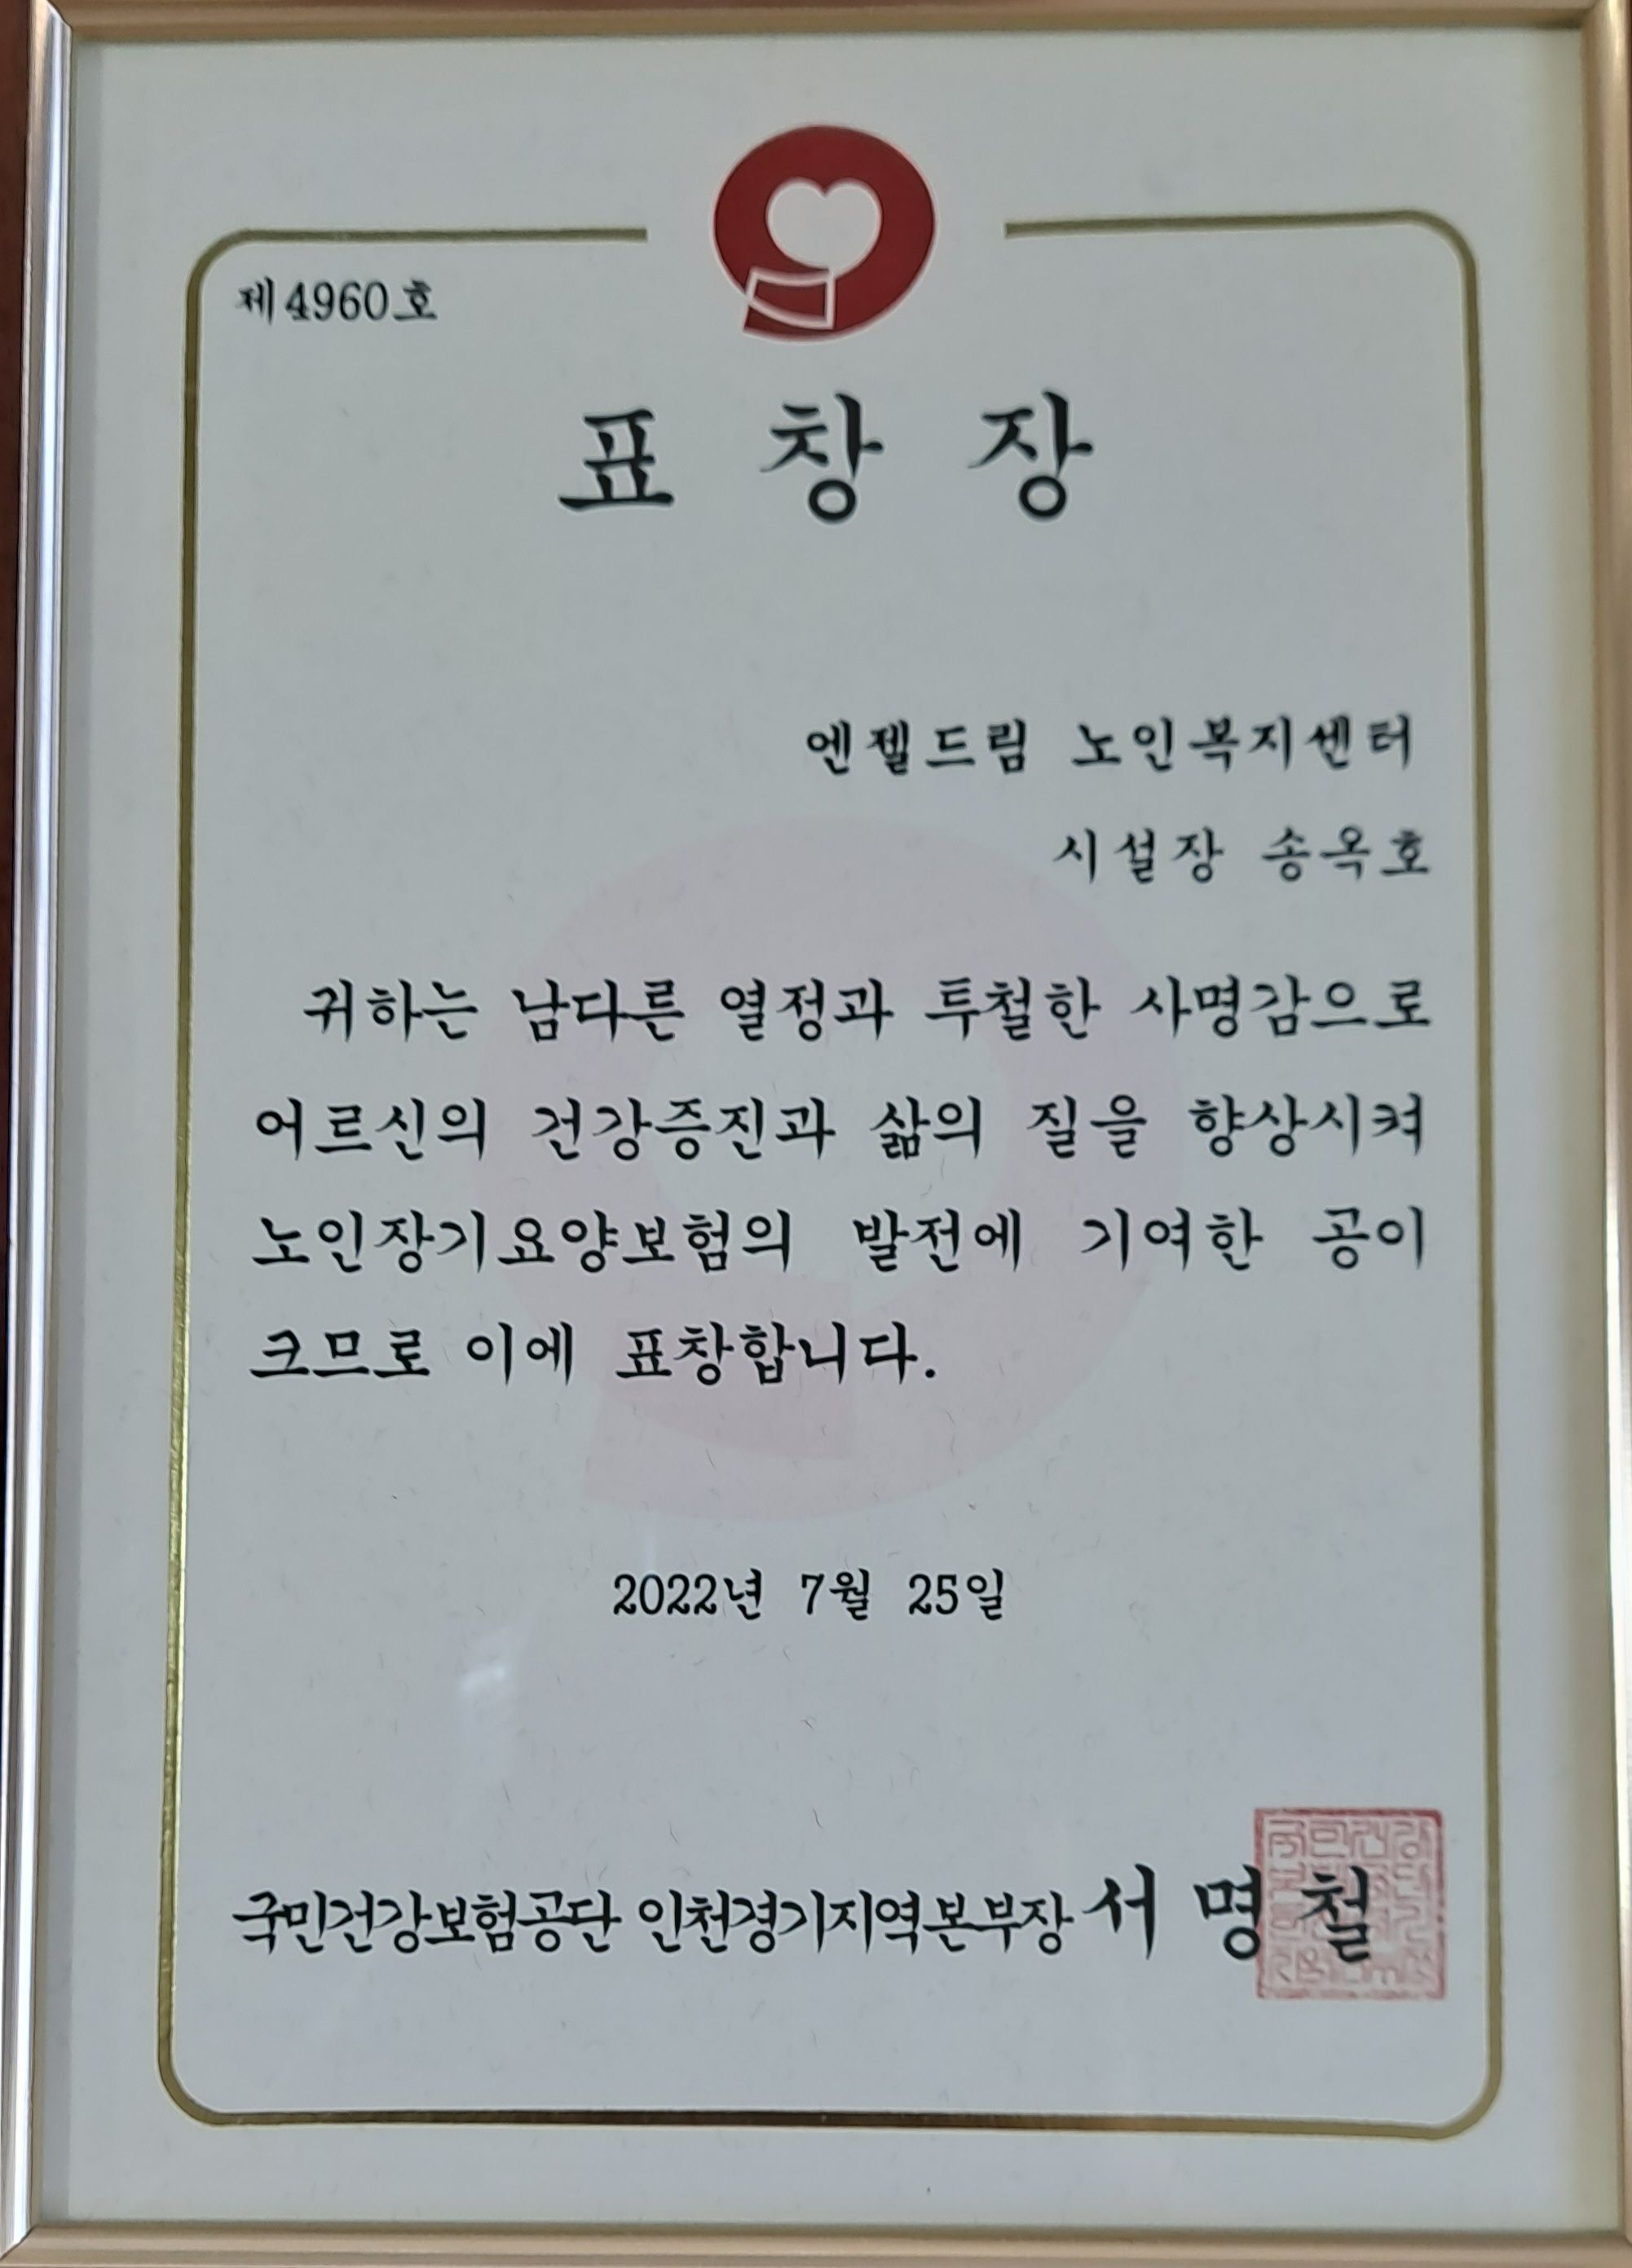 제4960호
표 창 장
엔젤드림 노인복지센터
시설장 송옥호
귀하는 남다른 열정과 투철한 사명감으로
어르신의 건강증진과 삶의 질을 향상시켜
노인장기요양보험의 발전에 기여한 공이
크므로 이에 표창합니다.
2022년 7월 25일
국민건강보험공단 인천경기지역본부장 서 명 철